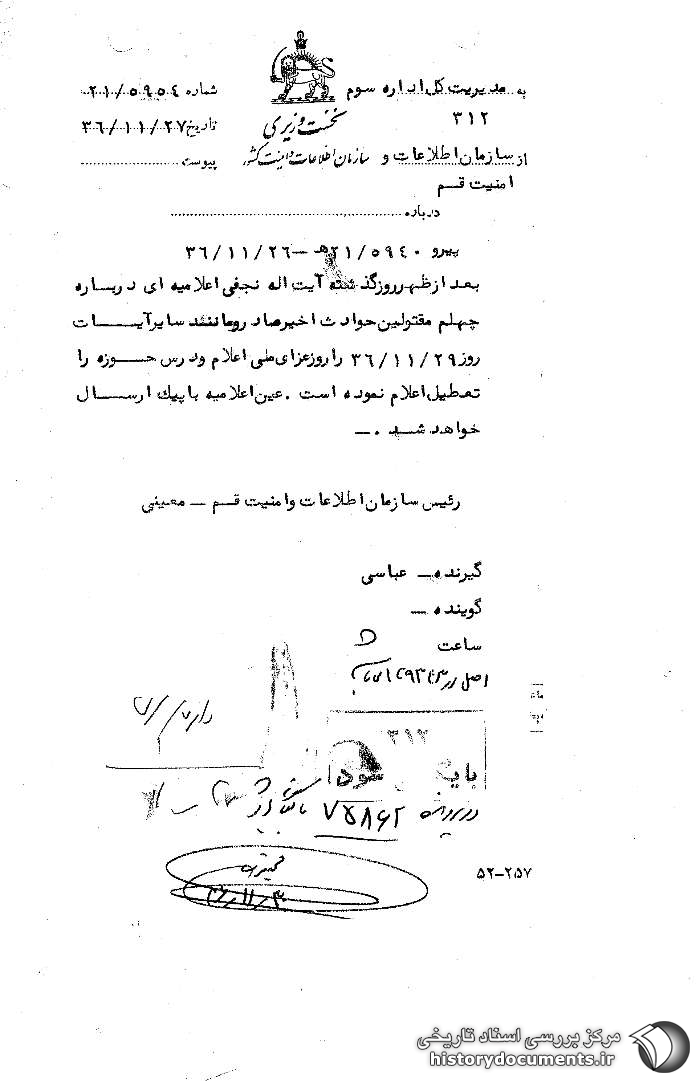 به مدیریت کل اداره سوم
۳۱۲
نخست وزیری
شماره ۲۱/۵۹۵۴
تاریخ ۳۶/۱۱/۲۷
از سازمان اطلاعات و
سازمان اطلاعات و امنیت کشور
پیوست
امنیت قم
درباره
پیرو ۲۱/۵۹۴۰ﻫ – ۳۶/۱۱/۲۶
بعد از ظهر روز گذشته آیت اله نجفی اعلامیه ای درباره
چهلم مقتولین حوادث اخیر صادر و مانند سایر آیات
روز ۳۶/۱۱/۲۹ را روز عزای ملی اعلام و درس حوزه را
تعطیل اعلام نموده است . عین اعلامیه با پیک ارسال
خواهد شد . –
رئیس سازمان اطلاعات و امنیت قم – معینی
گیرنده – عباسی
گوینده –
ساعت ۵
اصل در
۳۱۲
شود
در پرونده ۷۵۸۶۲
۵۲-۲۵۷
مرکز بررسی اسناد تاریخی
historydocuments.ir